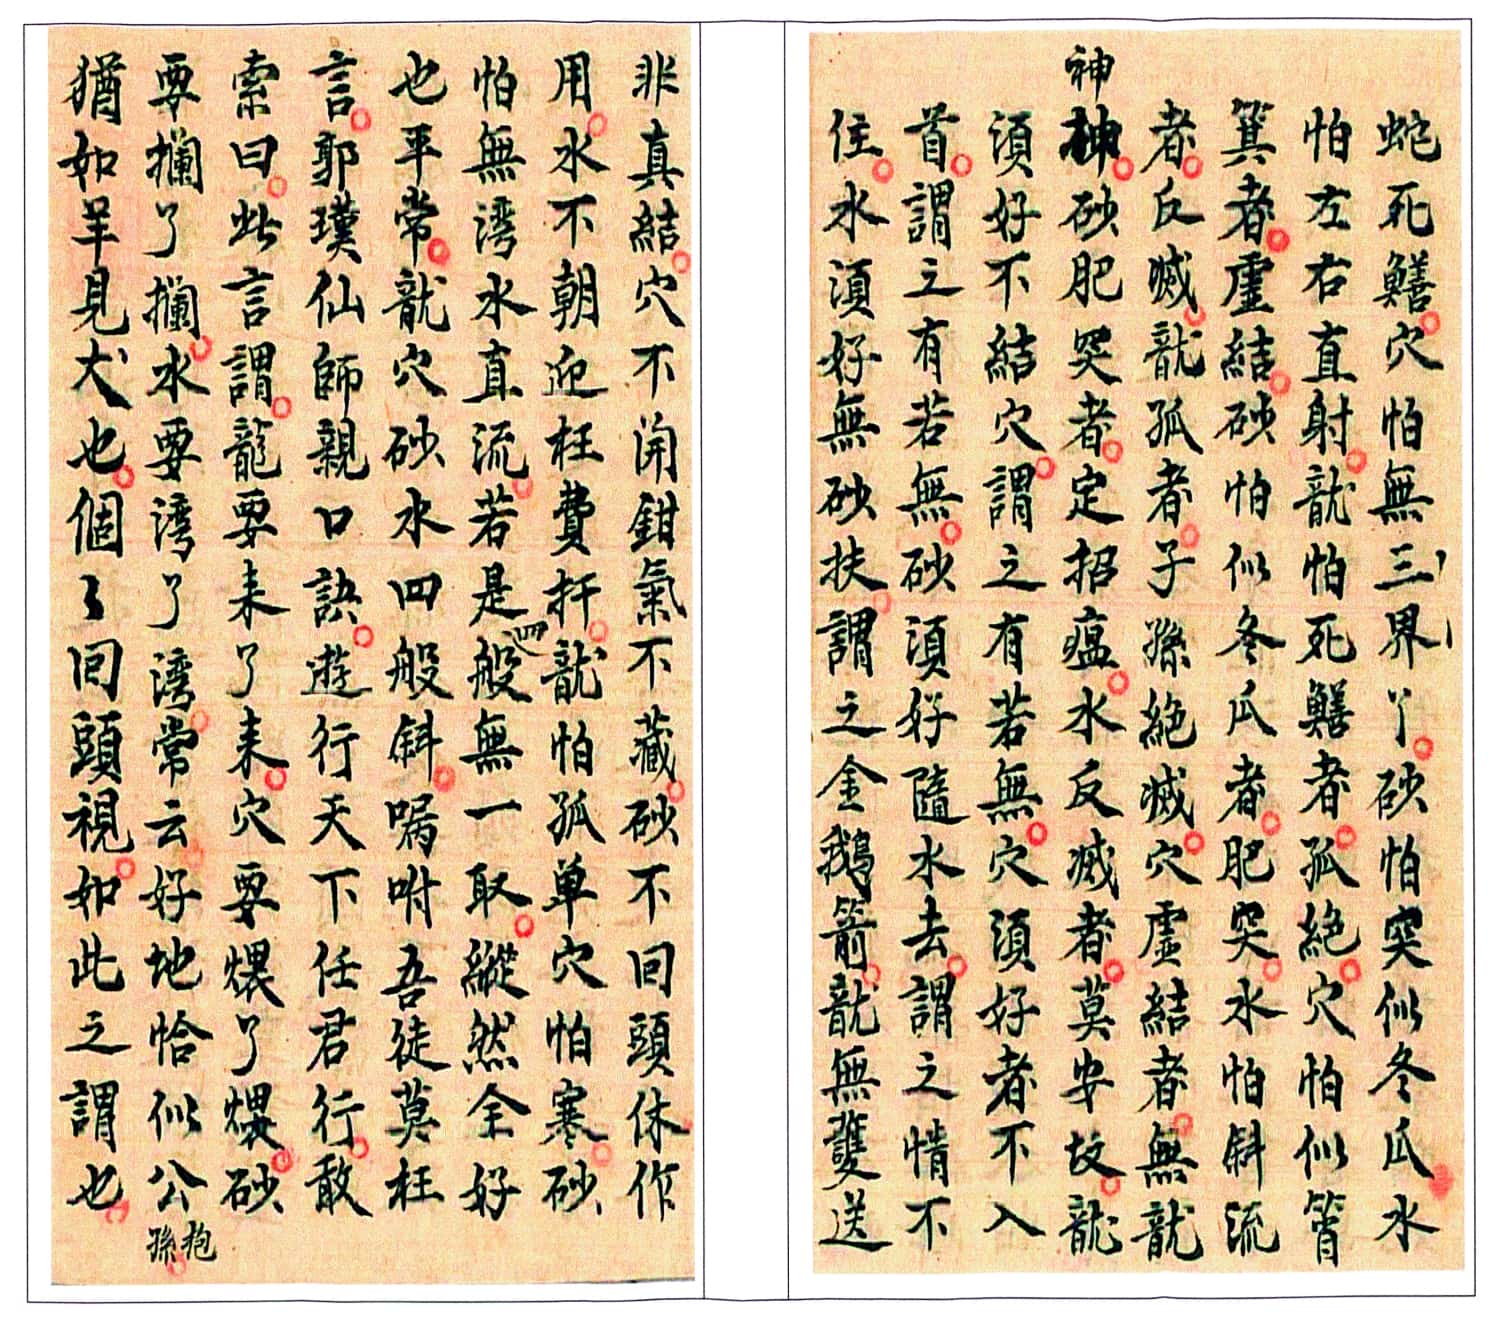 蛇死鱔穴怕無三界丫砂怕突似冬瓜水
怕左右直射龍怕死鱔者孤絕穴怕似箵
箕者虛結砂怕似冬瓜者肥突水怕斜流
者反滅龍孤者子孫絕滅穴虛結者無龍
神
神砂肥突者定招瘟水反滅者莫安坟龍
須好不結穴謂之有若無穴須好者不入
首謂之有若無砂須好隨水去謂之情不
住水須好無砂扶謂之金鵝箭龍無雙送
非真結穴不開鉗氣不藏砂不回頭休作
用水不朝迎枉費扦龍怕孤单穴怕寒砂
怕無湾水直流若是四般無一取縱然全好
也平常龍穴砂水四般斜嘱咐吾徒莫枉
言郭璞仙師親口訣遊行天下任君行敢
索曰此言謂龍要来了来穴要煨了煨砂
要攔了攔水要湾了湾常云好地恰似公
抱孫
猶如羊見犬也個々回頭視如此之謂也